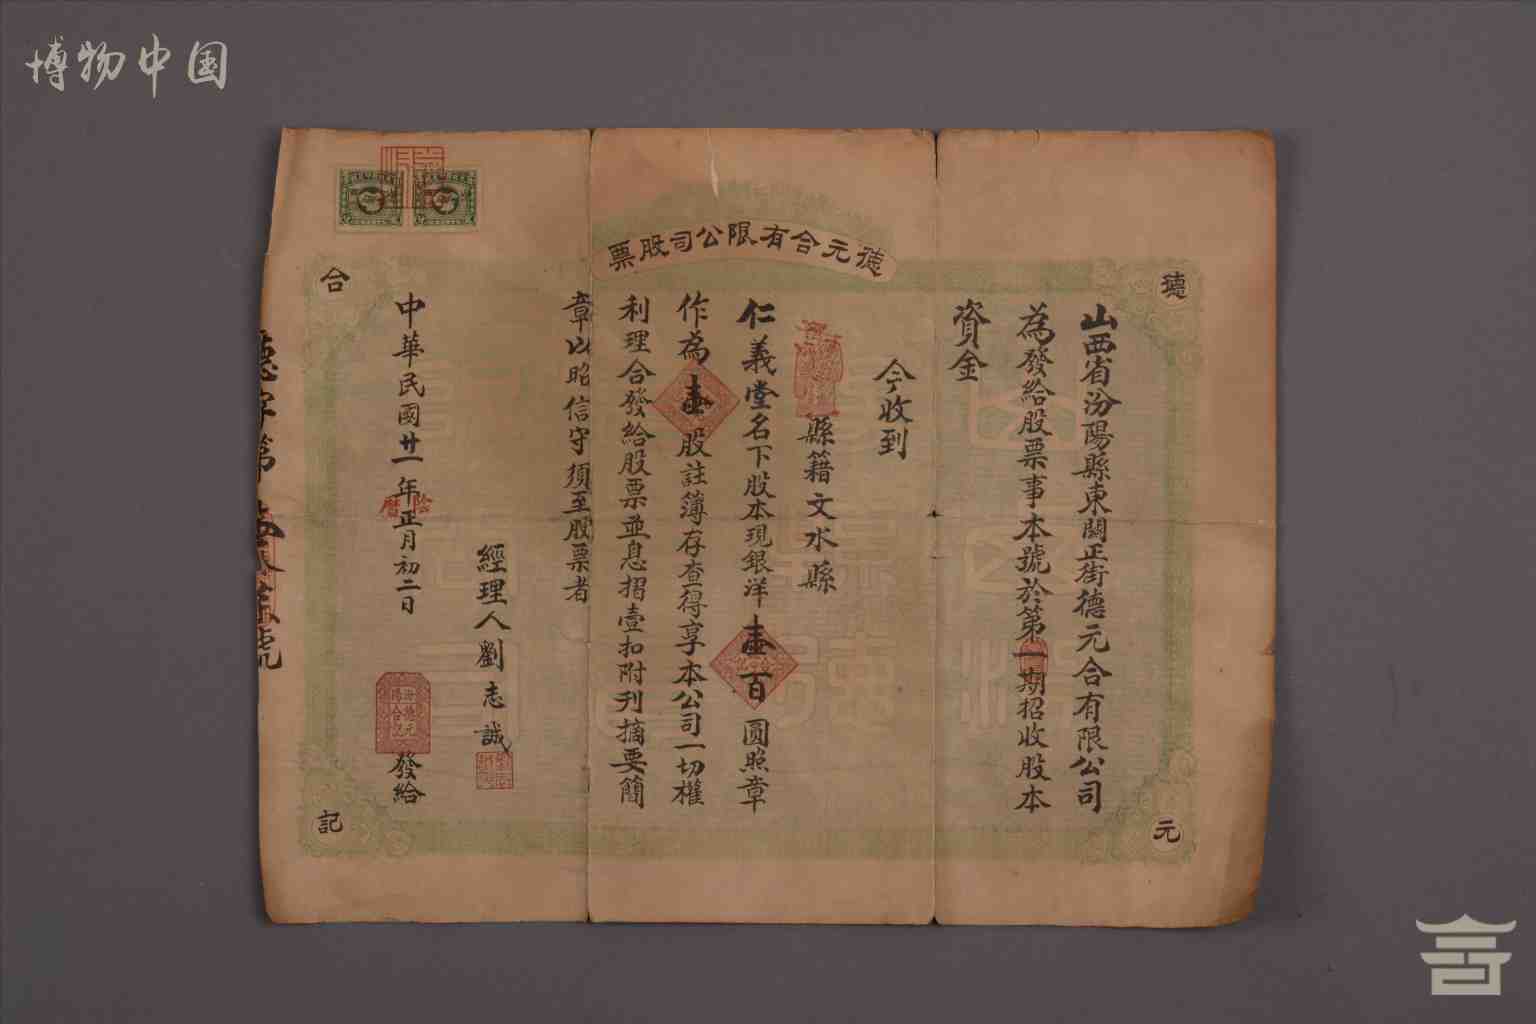 博物中国
德元合有限公司股票
德
元
合
記
山西省汾陽縣東關正街德元合有限公司
為發給股票事本號於第一期招收股本
資金
今收到
縣籍文水縣
仁義堂名下股本現銀洋壹百圓照章
作為壹股註簿存查得享本公司一切權
利理合發給股票並息摺壹扣附刊摘要簡
章以昭信守須至股票者
經理人劉志誠
中華民國廿一年正月初二日
陰曆
發給
汾陽德元合記
德字第 號